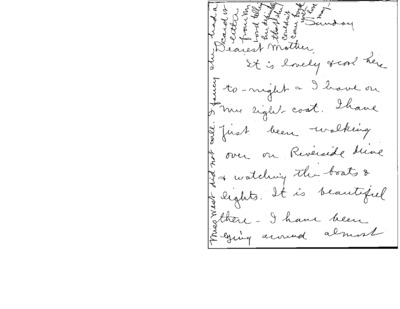 Sunday
Dearest Mother,
It is lovely & cool here
to-night & I have on
my light coat. I have
just been walking
over on Riverside Drive
& watching the boats &
lights. It is beautiful
there - I have been
going around almost
Miss West did not call. I fancy she had a
letter
from